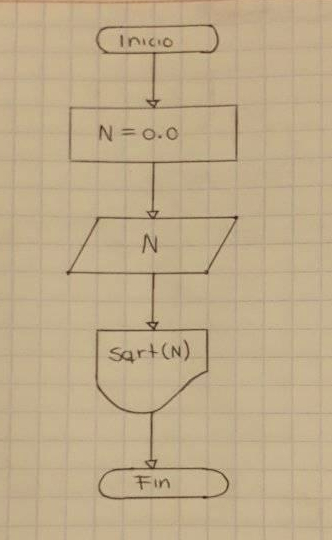 Inicio
N = 0.0
N
Sqrt(N)
Fin